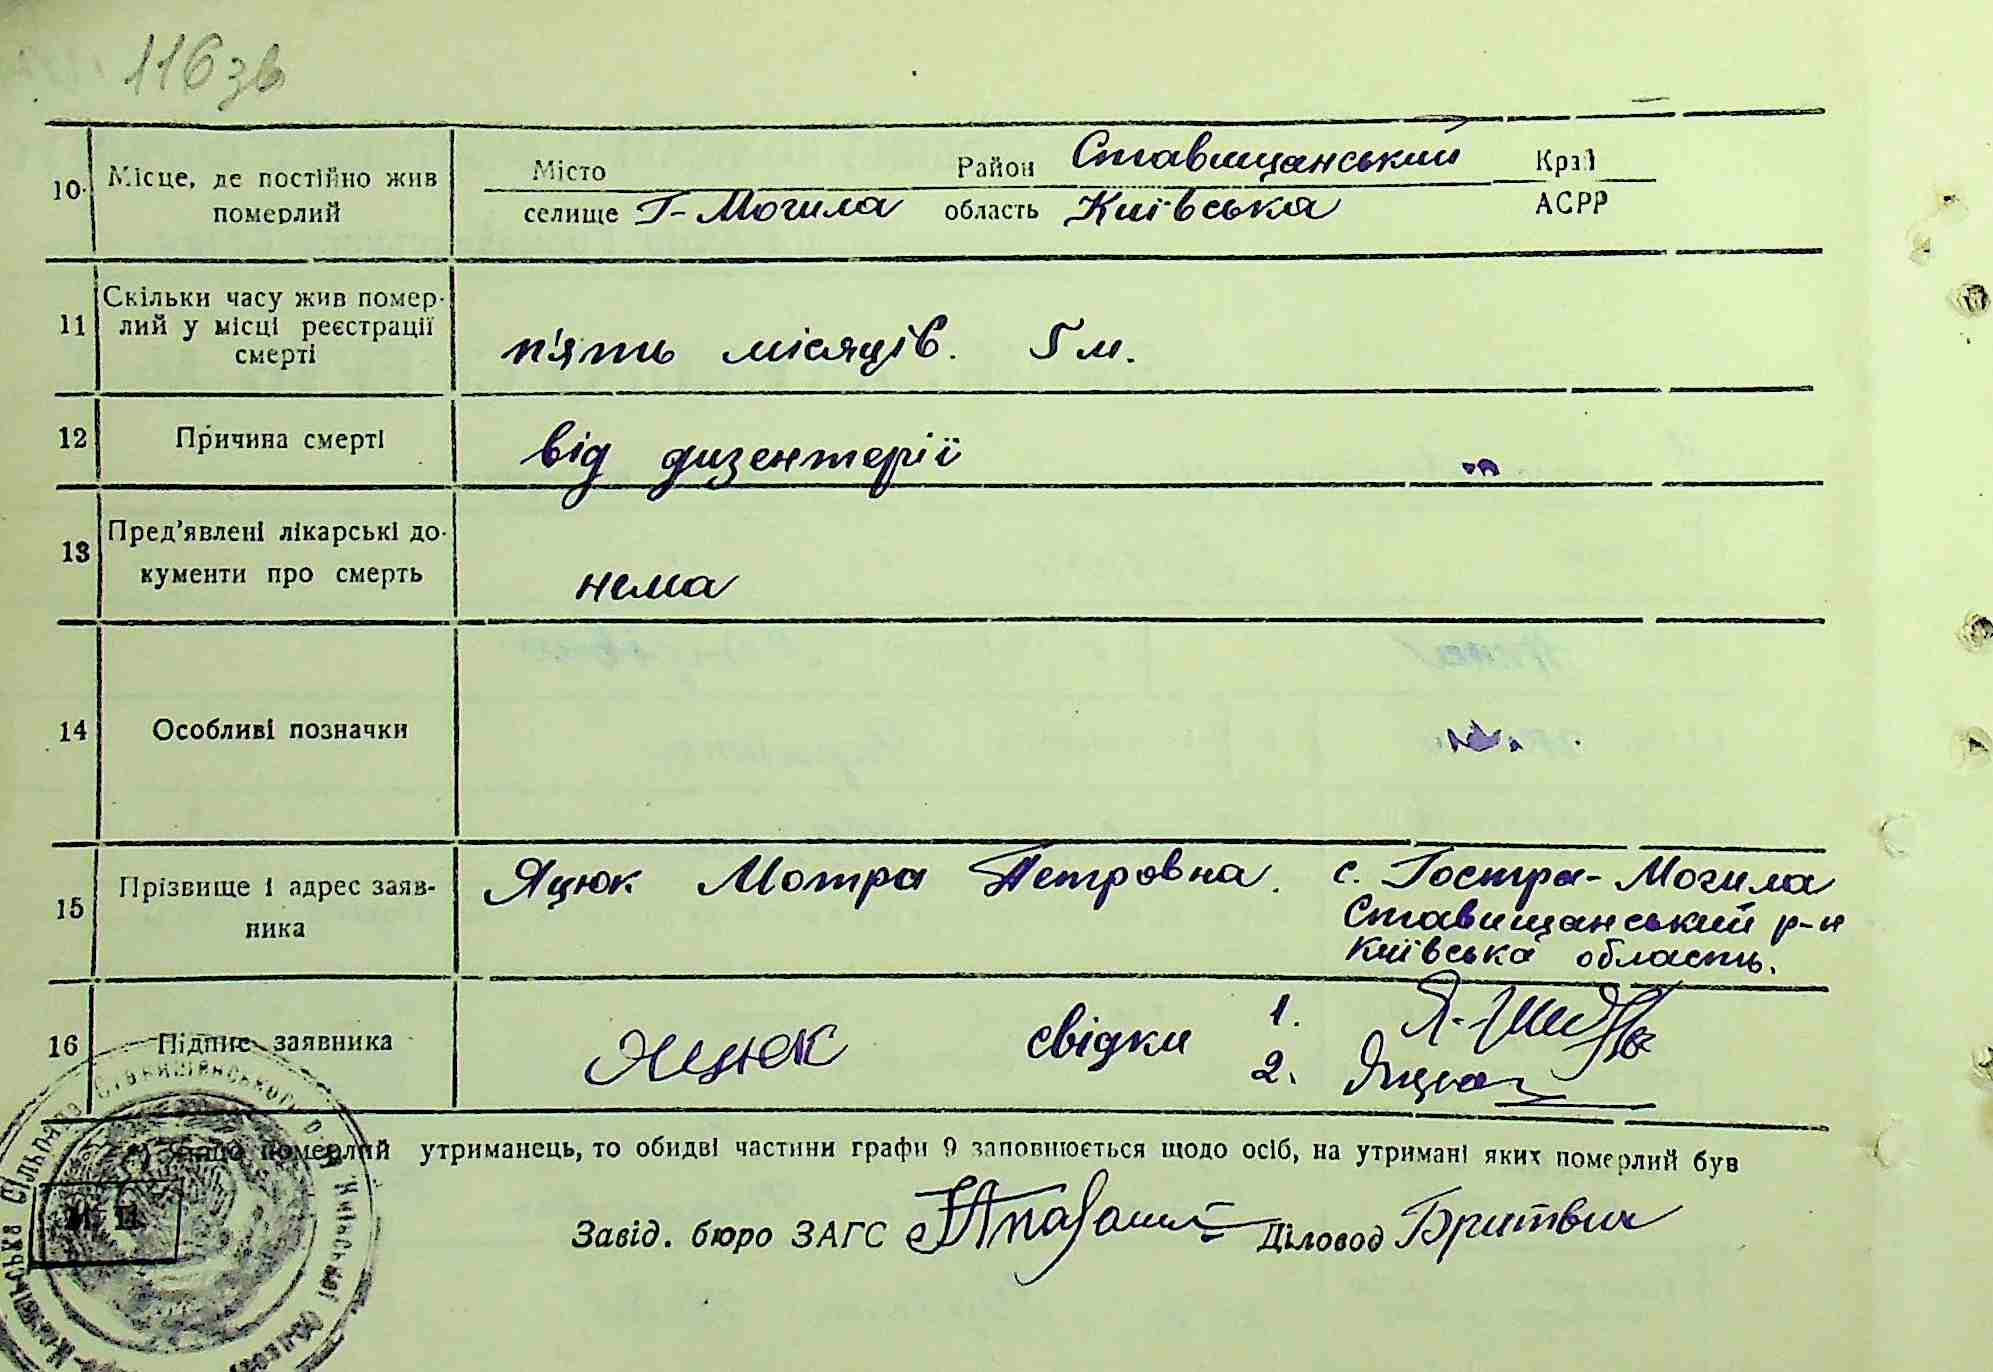 116 зв
10. Місце, де постійно жив померлий Місто Район Ставищанський Край
селище Г-Могила область Київська АСРР
11 Скільки часу жив помер-
лий у місці реєстрації
смерті п'ять місяців. 5 м.
12 Причина смерті від дизентерії
13 Пред'явлені лікарські до-
кументи про смерть нема
14 Особливі позначки
15 Прізвище і адрес заяв-
ника Яцюк Мотра Петровна. с. Гостра-Могила
Ставищанський р-н
Київська область.
16 Підпис заявника Яцюк свідки 1.
2. Яцюк
померлий утриманець, то обидві частини графи 9 заповнюється щодо осіб, на утримані яких померлий був
Завід. бюро ЗАГС Діловод Бритвич
М. П.
Сільрада Ставищанського р-н Київської